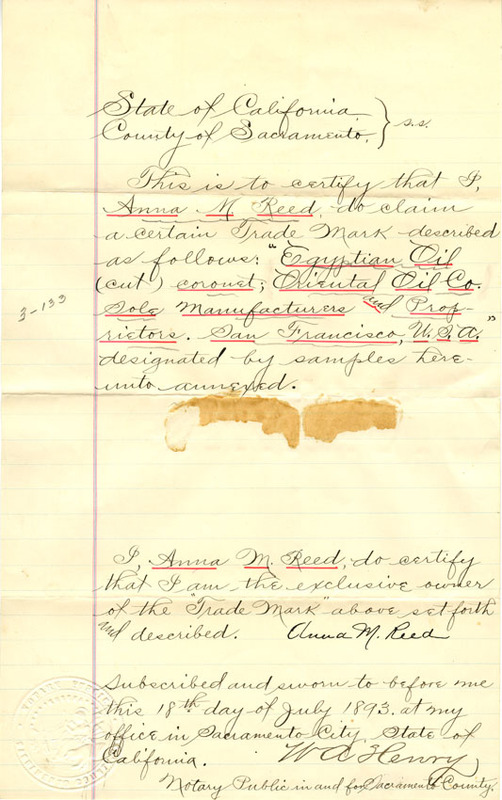 State of California
County of Sacramento. } s.s.
This is to certify that I,
Anna M Reed, do claim
a certain Trade Mark described
as follows: "Egyptian Oil
(cut) coronet; Oriental Oil Co.
Sole Manufacturers and Prop-
rietors. San Francisco, U.S.A."
designated by samples here-
unto annexed.
3-133
I, Anna M. Reed, do certify
that I am the exclusive owner
of the "Trade Mark" above set forth
and described. Anna M. Reed
Subscribed and sworn to before me
this 18th day of July 1893, at my
office in Sacramento City, State of
California. W A Henry
Notary Public in and for Sacramento County.